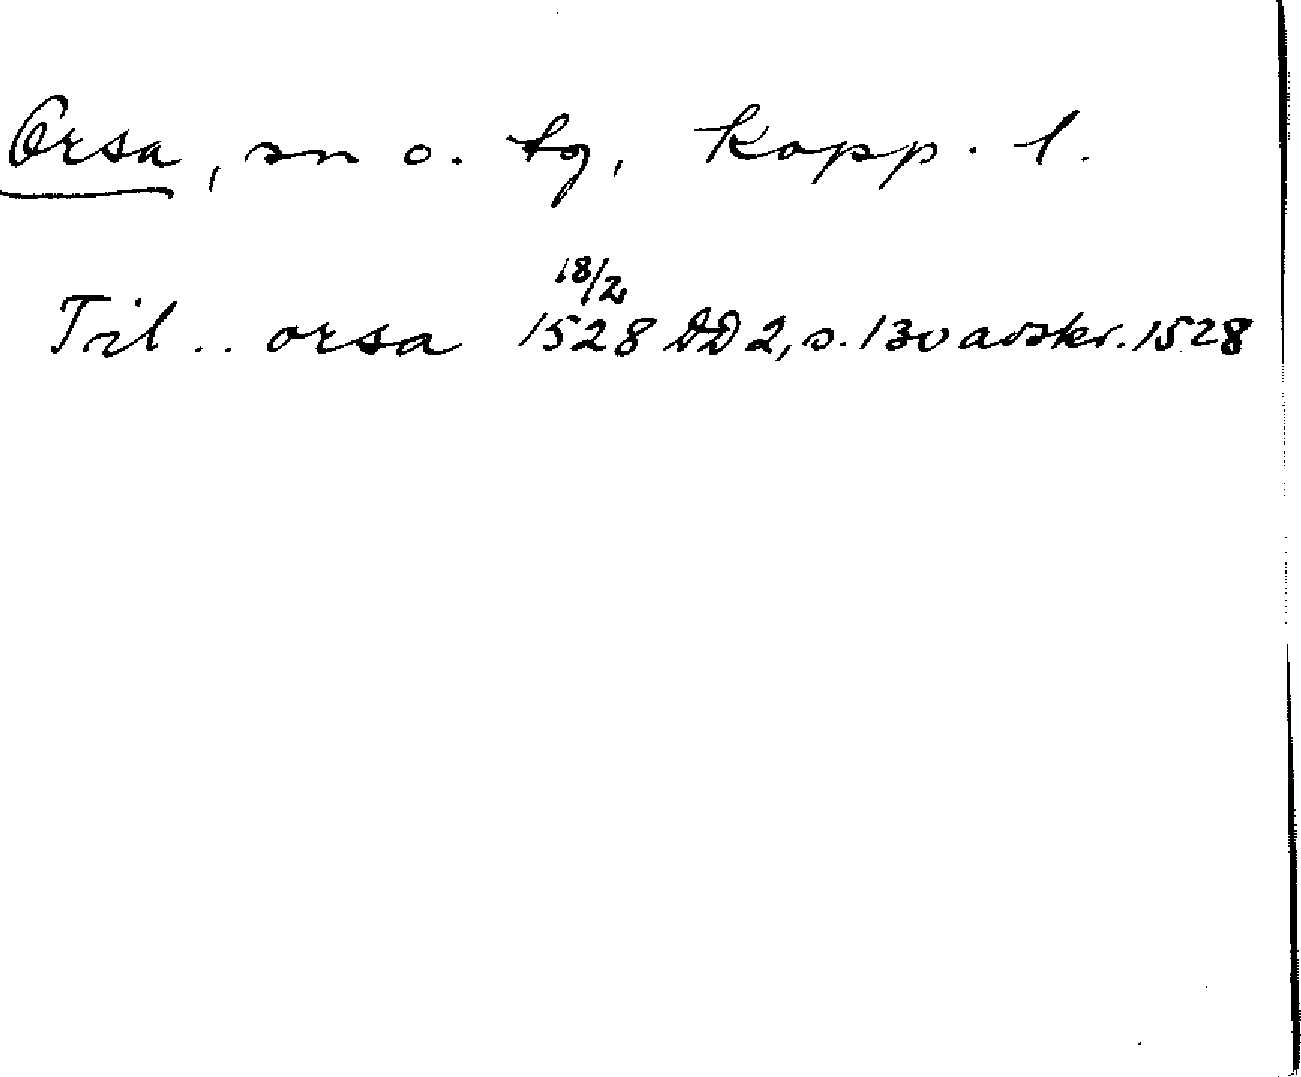 Orsa, sn o. tg, Kopp. l.
Til .. orsa 18/2 1528 DD 2, s. 130 avskr. 1528